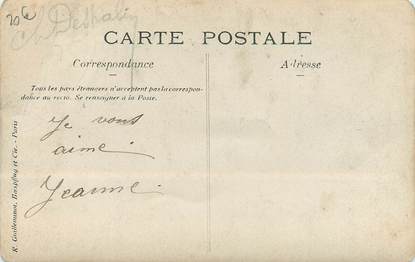 20€
CARTE POSTALE
Correspondance
Adresse
Tous les pays étrangers n'acceptent pas la correspon-
dance au recto. Se renseigner à la Poste.
Je vous
aime.
Jeanne.
R. Guilleminot, Bœspflug et Cie. - Paris